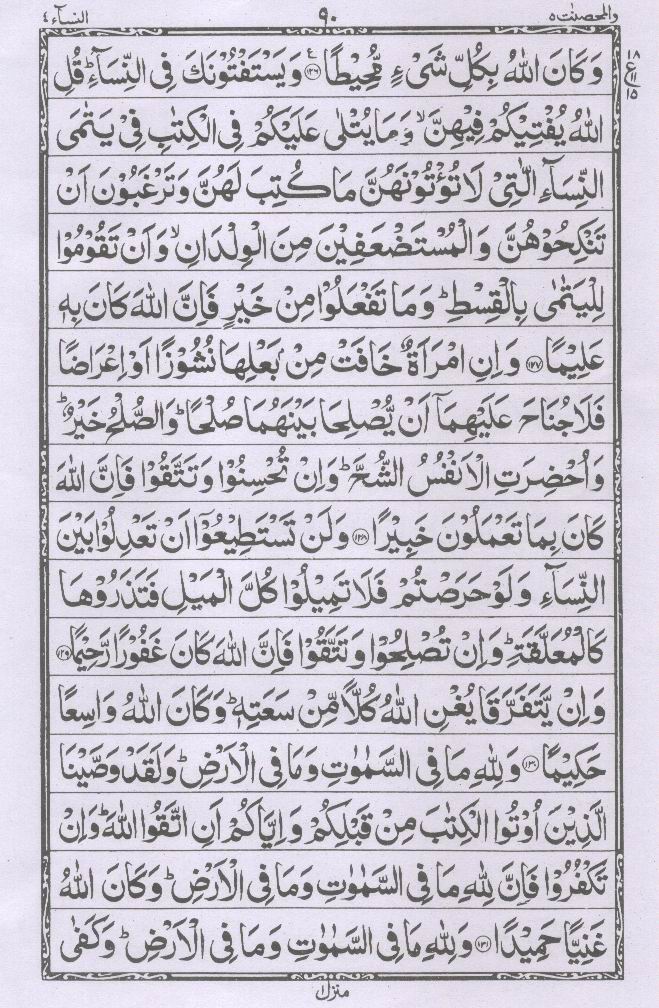 والمحصنٰت ٥ ٩٠ النسآء ٤
وَكَانَ اللّٰهُ بِكُلِّ شَیْءٍ مُّحِیْطًا ﴿١٢٦﴾ ع وَ یَسْتَفْتُوْنَكَ فِی النِّسَآءِ ؕ قُلِ
١٨ ع ١١ ١٥
اللّٰهُ یُفْتِیْكُمْ فِیْهِنَّ ۙ وَ مَا یُتْلٰی عَلَیْكُمْ فِی الْكِتٰبِ فِیْ یَتٰمَی
النِّسَآءِ الّٰتِیْ لَا تُؤْتُوْنَهُنَّ مَا كُتِبَ لَهُنَّ وَ تَرْغَبُوْنَ اَنْ
تَنْكِحُوْهُنَّ وَ الْمُسْتَضْعَفِیْنَ مِنَ الْوِلْدَانِ ۙ وَ اَنْ تَقُوْمُوْا
لِلْیَتٰمٰی بِالْقِسْطِ ؕ وَ مَا تَفْعَلُوْا مِنْ خَیْرٍ فَاِنَّ اللّٰهَ كَانَ بِهٖ
عَلِیْمًا ﴿١٢٧﴾ وَ اِنِ امْرَاَةٌ خَافَتْ مِنْۢ بَعْلِهَا نُشُوْزًا اَوْ اِعْرَاضًا
فَلَا جُنَاحَ عَلَیْهِمَاۤ اَنْ یُّصْلِحَا بَیْنَهُمَا صُلْحًا ؕ وَ الصُّلْحُ خَیْرٌ ؕ
وَ اُحْضِرَتِ الْاَنْفُسُ الشُّحَّ ؕ وَ اِنْ تُحْسِنُوْا وَ تَتَّقُوْا فَاِنَّ اللّٰهَ
كَانَ بِمَا تَعْمَلُوْنَ خَبِیْرًا ﴿١٢٨﴾ وَ لَنْ تَسْتَطِیْعُوْۤا اَنْ تَعْدِلُوْا بَیْنَ
النِّسَآءِ وَ لَوْ حَرَصْتُمْ فَلَا تَمِیْلُوْا كُلَّ الْمَیْلِ فَتَذَرُوْهَا
كَالْمُعَلَّقَةِ ؕ وَ اِنْ تُصْلِحُوْا وَ تَتَّقُوْا فَاِنَّ اللّٰهَ كَانَ غَفُوْرًا رَّحِیْمًا ﴿١٢٩﴾
وَ اِنْ یَّتَفَرَّقَا یُغْنِ اللّٰهُ كُلًّا مِّنْ سَعَتِهٖ ؕ وَ كَانَ اللّٰهُ وَاسِعًا
حَكِیْمًا ﴿١٣٠﴾ وَ لِلّٰهِ مَا فِی السَّمٰوٰتِ وَ مَا فِی الْاَرْضِ ؕ وَ لَقَدْ وَصَّیْنَا
الَّذِیْنَ اُوْتُوا الْكِتٰبَ مِنْ قَبْلِكُمْ وَ اِیَّاكُمْ اَنِ اتَّقُوا اللّٰهَ ؕ وَ اِنْ
تَكْفُرُوْا فَاِنَّ لِلّٰهِ مَا فِی السَّمٰوٰتِ وَ مَا فِی الْاَرْضِ ؕ وَ كَانَ اللّٰهُ
غَنِیًّا حَمِیْدًا ﴿١٣١﴾ وَ لِلّٰهِ مَا فِی السَّمٰوٰتِ وَ مَا فِی الْاَرْضِ ؕ وَ كَفٰی
منزل ١